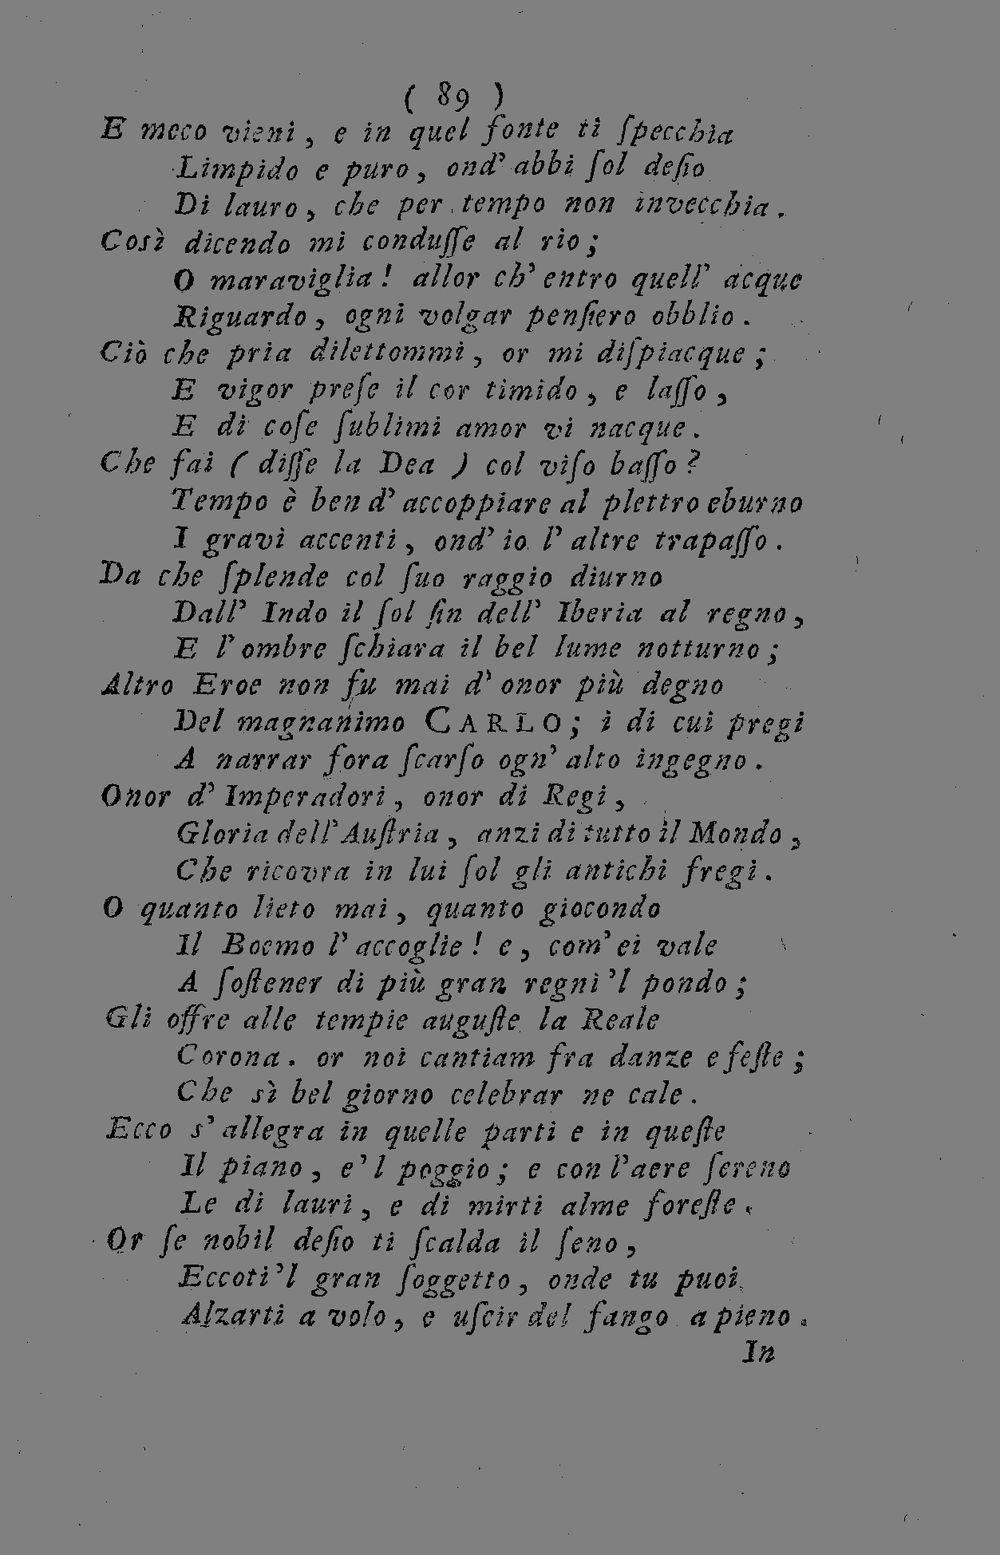 ( 89 )
E meco vieni, e in quel fonte ti ſpecchia
Limpido e puro, ond' abbi ſol deſio
Di lauro, che per tempo non invecchia.
Così dicendo mi conduſſe al rio;
O maraviglia! allor ch' entro quell' acque
Riguardo, ogni volgar penſiero obblio.
Ciò che pria dilettommi, or mi diſpiacque;
E vigor preſe il cor timido, e laſſo,
E di coſe ſublimi amor vi nacque.
Che fai ( diſſe la Dea ) col viſo baſſo?
Tempo è ben d' accoppiare al plettro eburno
I gravi accenti, ond' io l' altre trapaſſo.
Da che ſplende col ſuo raggio diurno
Dall' Indo il ſol ſin dell' Iberia al regno,
E l' ombre ſchiara il bel lume notturno;
Altro Eroe non fu mai d' onor più degno
Del magnanimo CARLO; i di cui pregi
A narrar fora ſcarſo ogn' alto ingegno.
Onor d' Imperadori, onor di Regi,
Gloria dell' Auſtria, anzi di tutto il Mondo,
Che ricovra in lui ſol gli antichi fregi.
O quanto lieto mai, quanto giocondo
Il Boemo l' accoglie! e, com' ei vale
A ſoſtener di più gran regni 'l pondo;
Gli offre alle tempie auguſte la Reale
Corona. or noi cantiam fra danze e feſte;
Che sì bel giorno celebrar ne cale.
Ecco s' allegra in quelle parti e in queſte
Il piano, e 'l poggio; e con l' aere ſereno
Le di lauri, e di mirti alme foreſte.
Or ſe nobil deſio ti ſcalda il ſeno,
Eccoti 'l gran ſoggetto, onde tu puoi
Alzarti a volo, e uſcir del fango a pieno.
In